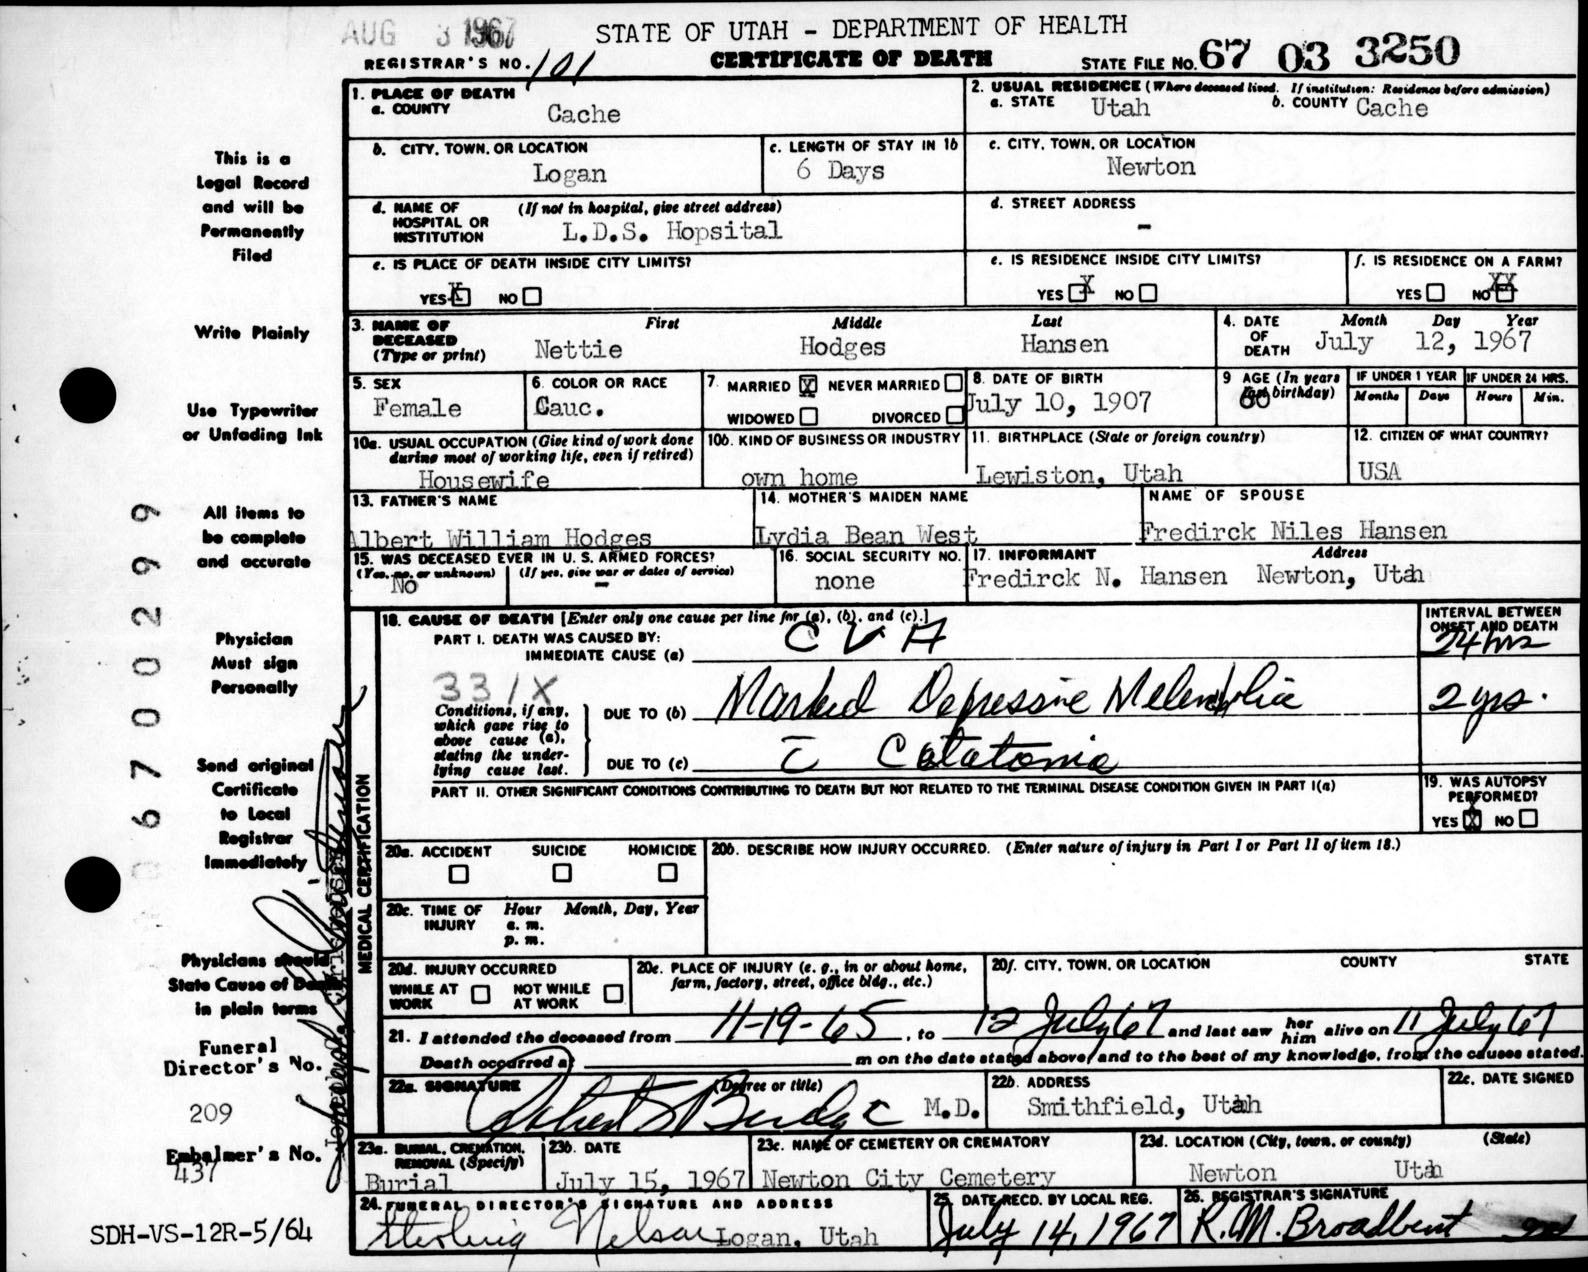 AUG 3 1967
STATE OF UTAH - DEPARTMENT OF HEALTH
REGISTRAR'S NO. 101
CERTIFICATE OF DEATH
STATE FILE NO. 67 03 3250
1. PLACE OF DEATH
a. COUNTY Cache
2. USUAL RESIDENCE (Where deceased lived. If institution: Residence before admission)
a. STATE Utah b. COUNTY Cache
b. CITY, TOWN, OR LOCATION
Logan
c. LENGTH OF STAY IN 1b
6 Days
c. CITY, TOWN, OR LOCATION
Newton
d. NAME OF HOSPITAL OR INSTITUTION (If not in hospital, give street address)
L.D.S. Hopsital
d. STREET ADDRESS
-
e. IS PLACE OF DEATH INSIDE CITY LIMITS?
YES X NO
e. IS RESIDENCE INSIDE CITY LIMITS?
YES X NO
f. IS RESIDENCE ON A FARM?
YES NO XX
3. NAME OF DECEASED (Type or print)
First Middle Last
Nettie Hodges Hansen
4. DATE OF DEATH
Month Day Year
July 12, 1967
5. SEX
Female
6. COLOR OR RACE
Cauc.
7. MARRIED X NEVER MARRIED
WIDOWED DIVORCED
8. DATE OF BIRTH
July 10, 1907
9 AGE (In years last birthday)
60
IF UNDER 1 YEAR IF UNDER 24 HRS.
Months Days Hours Min.
10a. USUAL OCCUPATION (Give kind of work done during most of working life, even if retired)
Housewife
10b. KIND OF BUSINESS OR INDUSTRY
own home
11. BIRTHPLACE (State or foreign country)
Lewiston, Utah
12. CITIZEN OF WHAT COUNTRY?
USA
13. FATHER'S NAME
Albert William Hodges
14. MOTHER'S MAIDEN NAME
Lydia Bean West
NAME OF SPOUSE
Fredirck Niles Hansen
15. WAS DECEASED EVER IN U. S. ARMED FORCES?
(Yes, no, or unknown) (If yes, give war or dates of service)
No -
16. SOCIAL SECURITY NO.
none
17. INFORMANT Address
Fredirck N. Hansen Newton, Utah
MEDICAL CERTIFICATION
18. CAUSE OF DEATH [Enter only one cause per line for (a), (b), and (c).]
INTERVAL BETWEEN ONSET AND DEATH
PART I. DEATH WAS CAUSED BY:
IMMEDIATE CAUSE (a) CVA 24 hrs
331X
Conditions, if any, which gave rise to above cause (a), stating the underlying cause last.
DUE TO (b) Marked Depressive Melencholia 2 yrs.
DUE TO (c) c̄ Catatonia
PART II. OTHER SIGNIFICANT CONDITIONS CONTRIBUTING TO DEATH BUT NOT RELATED TO THE TERMINAL DISEASE CONDITION GIVEN IN PART I(a)
19. WAS AUTOPSY PERFORMED?
YES X NO
20a. ACCIDENT SUICIDE HOMICIDE
20b. DESCRIBE HOW INJURY OCCURRED. (Enter nature of injury in Part I or Part II of item 18.)
20c. TIME OF INJURY Hour Month, Day, Year
a. m.
p. m.
20d. INJURY OCCURRED
WHILE AT WORK NOT WHILE AT WORK
20e. PLACE OF INJURY (e. g., in or about home, farm, factory, street, office bldg., etc.)
20f. CITY, TOWN, OR LOCATION COUNTY STATE
21. I attended the deceased from 11-19-65, to 12 July 67 and last saw her him alive on 11 July 67
Death occurred at m on the date stated above, and to the best of my knowledge, from the causes stated.
22a. SIGNATURE (Degree or title)
M.D.
22b. ADDRESS
Smithfield, Utah
22c. DATE SIGNED
23a. BURIAL, CREMATION, REMOVAL (Specify)
Burial
23b. DATE
July 15, 1967
23c. NAME OF CEMETERY OR CREMATORY
Newton City Cemetery
23d. LOCATION (City, town, or county) (State)
Newton Utah
24. FUNERAL DIRECTOR'S SIGNATURE AND ADDRESS
Sterling Nelson Logan, Utah
25. DATE RECD. BY LOCAL REG.
July 14, 1967
26. REGISTRAR'S SIGNATURE
R.M. Broadbent
This is a
Legal Record
and will be
Permanently
Filed
Write Plainly
Use Typewriter
or Unfading Ink
All items to
be complete
and accurate
Physician
Must sign
Personally
Send original
Certificate
to Local
Registrar
Immediately
Physicians should
State Cause of Death
in plain terms
Funeral
Director's No.
209
Embalmer's No.
437
SDH-VS-12R-5/64
0 6 7 0 0 2 9 9